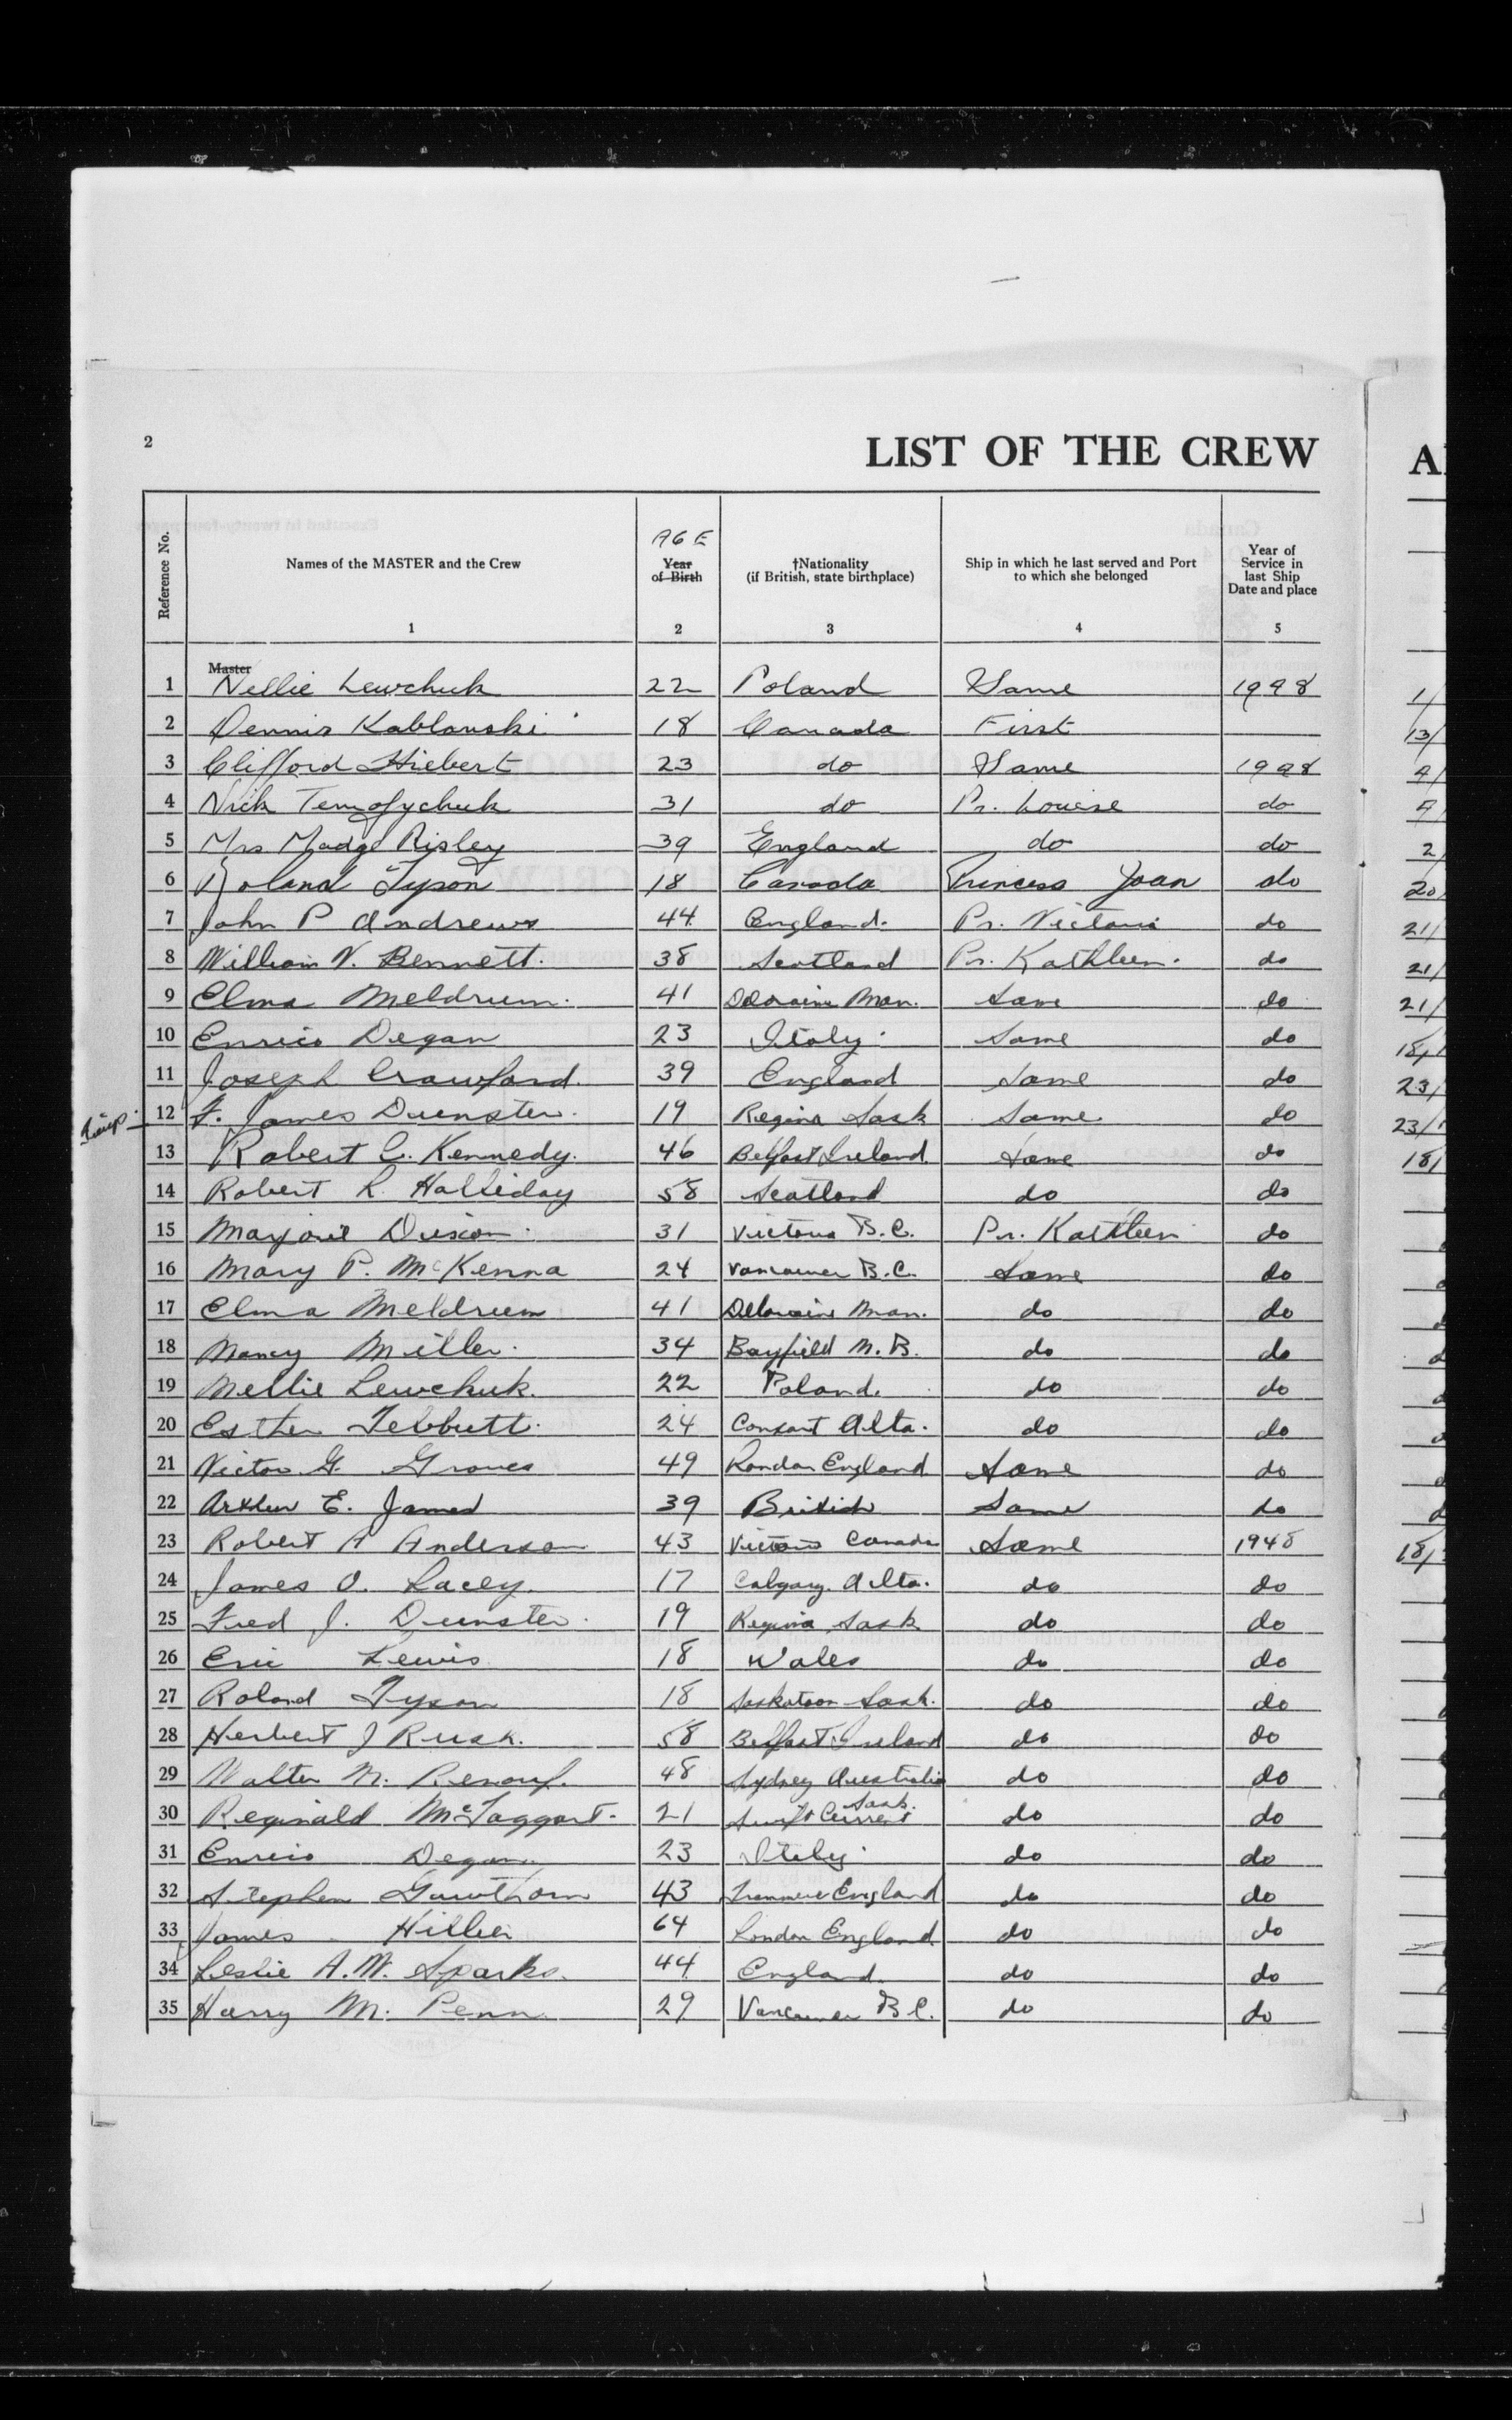 2
LIST OF THE CREW
Reference No.
Names of the MASTER and the Crew
AGE
Year of Birth
†Nationality (if British, state birthplace)
Ship in which he last served and Port to which she belonged
Year of Service in last Ship Date and place
1 2 3 4 5
Master
1 Nellie Lewchuk 22 Poland Same 1948
2 Dennis Kablouski 18 Canada First
3 Clifford Hiebert 23 do Same 1948
4 Nick 31 do Pr. Louise do
5 Mrs Madge Risley 39 England do do
6 Roland Tyson 18 Canada Princess Joan do
7 John P Andrews 44 England. Pr. Victoria do
8 William V. Bennett. 38 Scotland Pr. Kathleen. do
9 Elma Meldrum. 41 Deloraine Man. Same do
10 Enrico Degan 23 Italy. Same do
11 Joseph Crawford. 39 England Same do
12 F. James Dunster. 19 Regina Sask Same. do
13 Robert C. Kennedy. 46 Belfast Ireland. Same do
14 Robert R. Halliday 58 Scotland do do
15 Marjorie Dixon. 31 Victoria B.C. Pr. Kathleen do
16 Mary P. McKenna 24 Vancouver B.C. Same do
17 Elma Meldrum 41 Deloraine Man. do do
18 Nancy Miller. 34 Bayfield N.B. do do
19 Nellie Lewchuk. 22 Poland. do do
20 Esther Tebbutt. 24 Consort Alta. do do
21 Victor G. Groves 49 London England Same do
22 Arthur E. James 39 British Same do
23 Robert A Anderson 43 Victoria Canada Same 1948
24 James O. Lacey. 17 Calgary. Alta. do do
25 Fred J. Dunster. 19 Regina Sask. do do
26 Eric Lewis 18 Wales do do
27 Roland Tyson 18 Saskatoon Sask. do do
28 Herbert J Rusk. 58 Belfast Ireland do do
29 Walter M. Renouf. 48 Sydney Australia do do
30 Reginald McTaggart. 21 Swift Current Sask. do do
31 Enrico Degan. 23 Italy do do
32 Stephen Gawthorn 43 England do do
33 James Hillier 64 London England. do do
34 Leslie A.W. Sparks. 44 England. do do
35 Harry M. Penn. 29 Vancouver B.C. do do